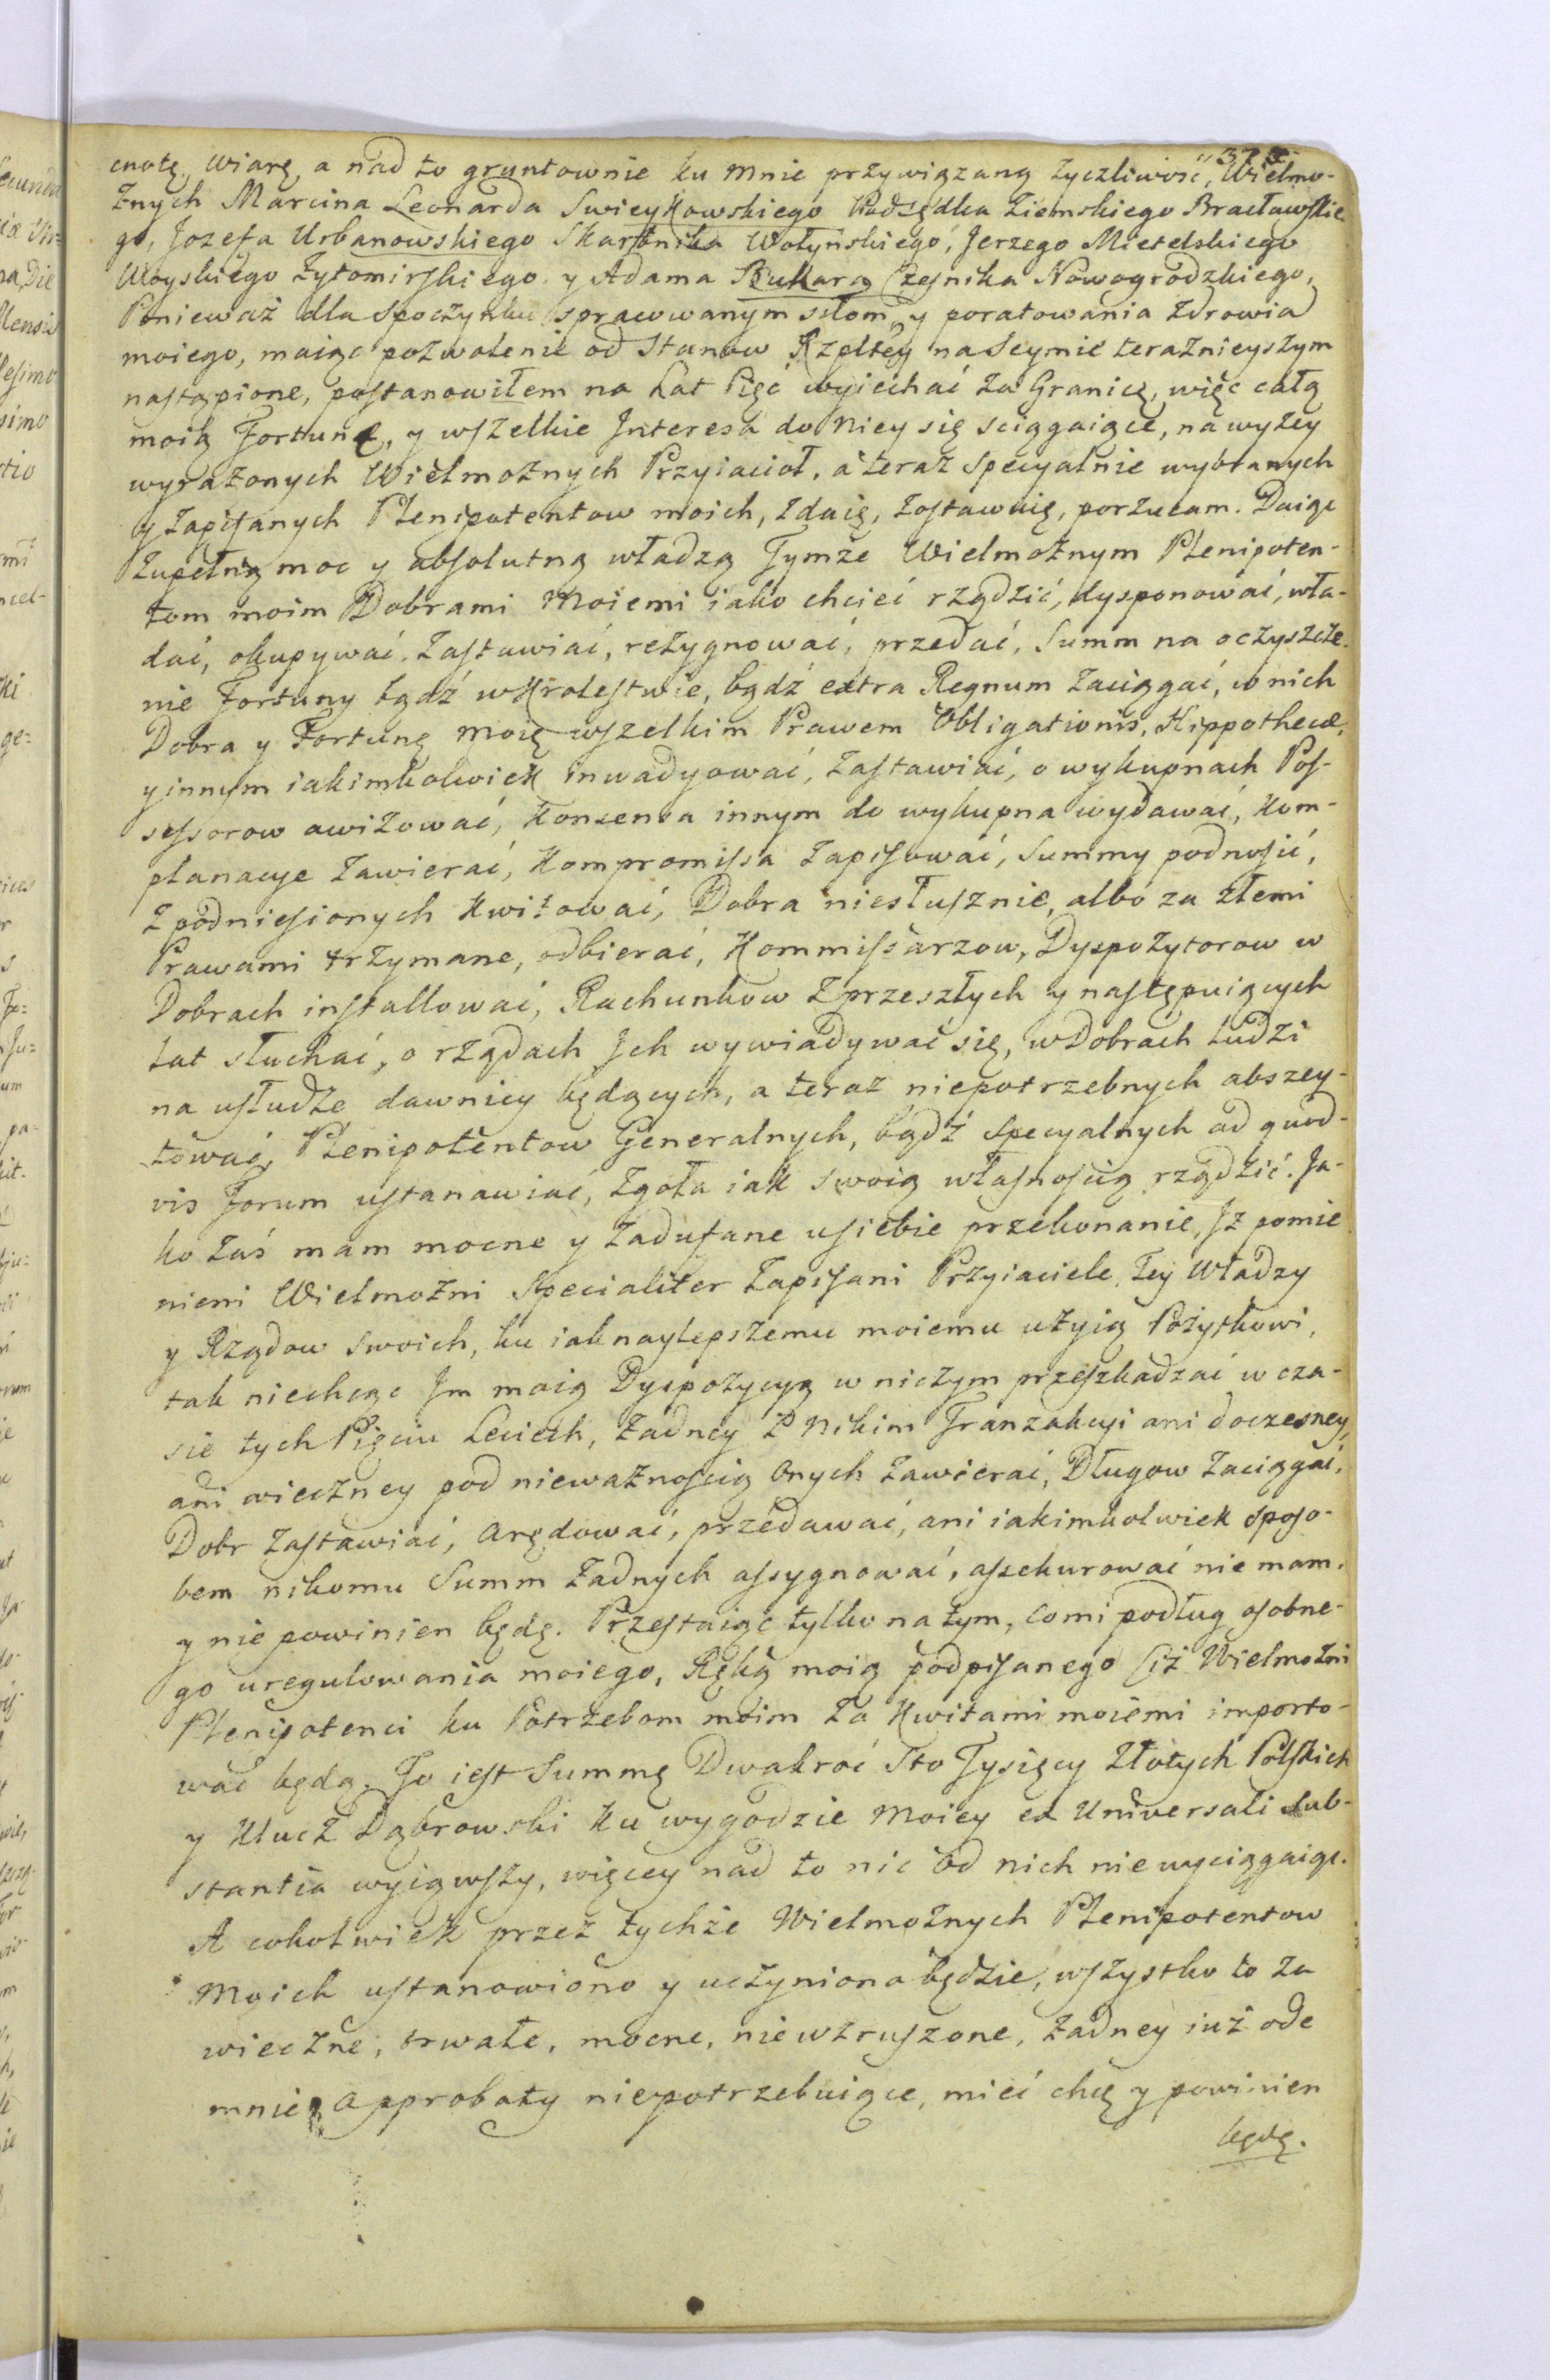 375
cnotę, wiarę, a nad to gruntownie ku mnie przywiązaną życzliwość, Wielmo-
żnych Marcina Leonarda Swieykowskiego Podsędka Ziemskiego Bracławskie-
go, Jozefa Urbanowskiego Skarbnika Wołyńskiego, Jerzego Mietelskiego
Woyskiego Żytomirskiego y Adama Bukara Cześnika Nowogrodzkiego,
Ponieważ dla spoczynku spracowanym siłom, y poratowania Zdrowia
moiego, maiąc pozwolenie od Stanow Rzpltey na Seymie teraznieyszym
nastąpione, postanowiłem na Lat Pięć wyiechać za Granicę, więc całą
moią Fortunę, y wszelkie Interesa do niey się sciągaiące, na wyżey
wyrażonych Wielmożnych Przyiacioł, a teraz specyalnie wybranych
y zapisanych Plenipotentow moich, zdaię, zostawuię, porzucam. Daiąc
zupełną moc y absolutną władzą Tymże Wielmożnym Plenipoten-
tom moim Dobrami Moiemi iako chcieć rządzić, dysponować, wła-
dać, okupywać, zastawiać, rezygnować, przedać, Summ na oczyszcze-
nie Fortuny bądź w Krolestwie, bądź extra Regnum zaciągać, w nich
Dobra y Fortunę moię wszelkim Prawem Obligationis, Hippothecæ,
y innym iakimkolwiek inwadyować, zastawiać, o wykupnach Pos-
sessorow awizować, Konsensa innym do wykupna wydawać, Kom-
planacye zawierać, Kompromissa zapisować, Summy podnosić,
z podniesionych kwitować, Dobra niesłusznie, albo za złemi
Prawami trzymane, odbierać, Kommissarzow, Dyspozytorow w
Dobrach installować, Rachunkow z przeszłych y następuiących
lat słuchać, o rządach Ich wywiadywać się, w Dobrach ludzi
na usłudze dawniey będących, a teraz niepotrzebnych abszey-
tować, Plenipotentow Generalnych, bądź specyalnych ad quod-
vis Forum ustanawiać, zgoła iak swoią własnością rządzić. Ja-
ko zaś mam mocne y zadufane u siebie przekonanie, Iż pomie
nieni Wielmożni Specialiter zapisani Przyiaciele, tey Władzy
y Rządow swoich, ku iak naylepszemu moiemu użyią Pożytkowi,
tak niechcąc Im moią Dyspozycyą w niczym przeszkadzać w cza-
sie tych Pięciu Leciech, żadney z Nikim Tranzakcyi ani doczesney,
ani wieczney pod nieważnością onych zawierać, Długow zaciągać,
Dobr zastawiać, arędować, przedawać, ani iakimkolwiek sposo-
bem nikomu Summ żadnych assygnować, assekurować nie mam,
y nie powinien będę. Przestaiąc tylko na tym, co mi podług osobne-
go uregulowania moiego, Ręką moią podpisanego Ciż Wielmożni
Plenipotenci ku Potrzebom moim za Kwitami moiemi importo-
wać będą, To iest Summę Dwakroć Sto Tysięcy Złotych Polskich
y Klucz Dąbrowski ku wygodzie moiey ex Universali sub-
stantia wyiąwszy, więcey nad to nic od nich nie wyciągaiąc.
A cokolwiek przez tychże Wielmożnych Plenipotentow
Moich ustanowiono y uczyniono będzie, wszystko to za
wieczne, trwałe, mocne, niewzruszone, żadney iuż ode
mnie Approbaty niepotrzebuiące, mieć chcę y powinien
będę.